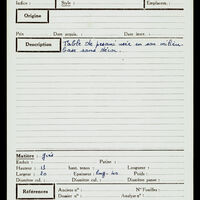 Indice : Style : Emplacem. :
Origine :
Prix Date acquis. : Date inscr. :
Description : Table de
en son milieu
base sans décor.
Matière : grès
Endroit : Patine :
Hauteur : 13 haut. tenon : Longueur :
Largeur : 20 Epaisseur :
Diamètre col. : Diamètre panse :
Références Ancien n° : N° Fouilles :
Dossier n° : Analyse n° :